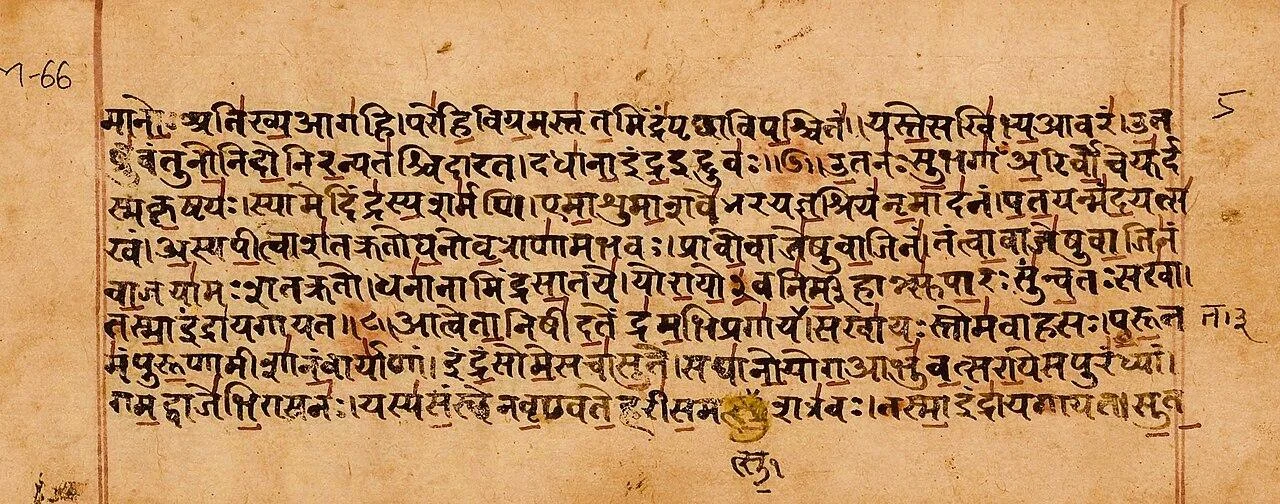 M-66
5
मानो अतिख्य आगहि । परेहि विग्रमस्तृतमिंद्रं पृछा विपश्चितं ॥ यस्ते सखिभ्य आ वरं । उत
ब्रुवंतु नो निदो निरन्यतश्चिदारत । दधाना इंद्र इद्दुवः ॥७॥ उत नः सुभगाँ अरिर्वोचेयुर्द
स्म कृष्टयः । स्यामेदिंद्रस्य शर्मणि । एमाशुमाशवे भर यज्ञश्रियं नृमादनं । पतयन्मंदयत्स
खं । अस्य पीत्वा शतक्रतो घनो वृत्राणामभवः । प्रावो वाजेषु वाजिनं । तं त्वा वाजेषु वाजिनं
वाजयामः शतक्रतो । धनानामिंद्र सातये । यो रायो३वनिर्म३हांत्सुपारः सुन्वतः सखा ।
तस्मा इंद्राय गायत ॥८॥ आत्वेता निषीदतेंद्रमभि प्रगायत । सखायः स्तोमवाहसः । पुरूत
त। ३
मं पुरूणामीशानं वार्याणां । इंद्रं सोमे सचा सुते । स घा नो योग आ भुवत्स राये स पुरंध्यां ।
गमद्वाजेभिरा स नः । यस्य संस्थे न वृण्वते हरी समत्सु शत्रवः । तस्मा इंद्राय गायत । सुत
त्सु१